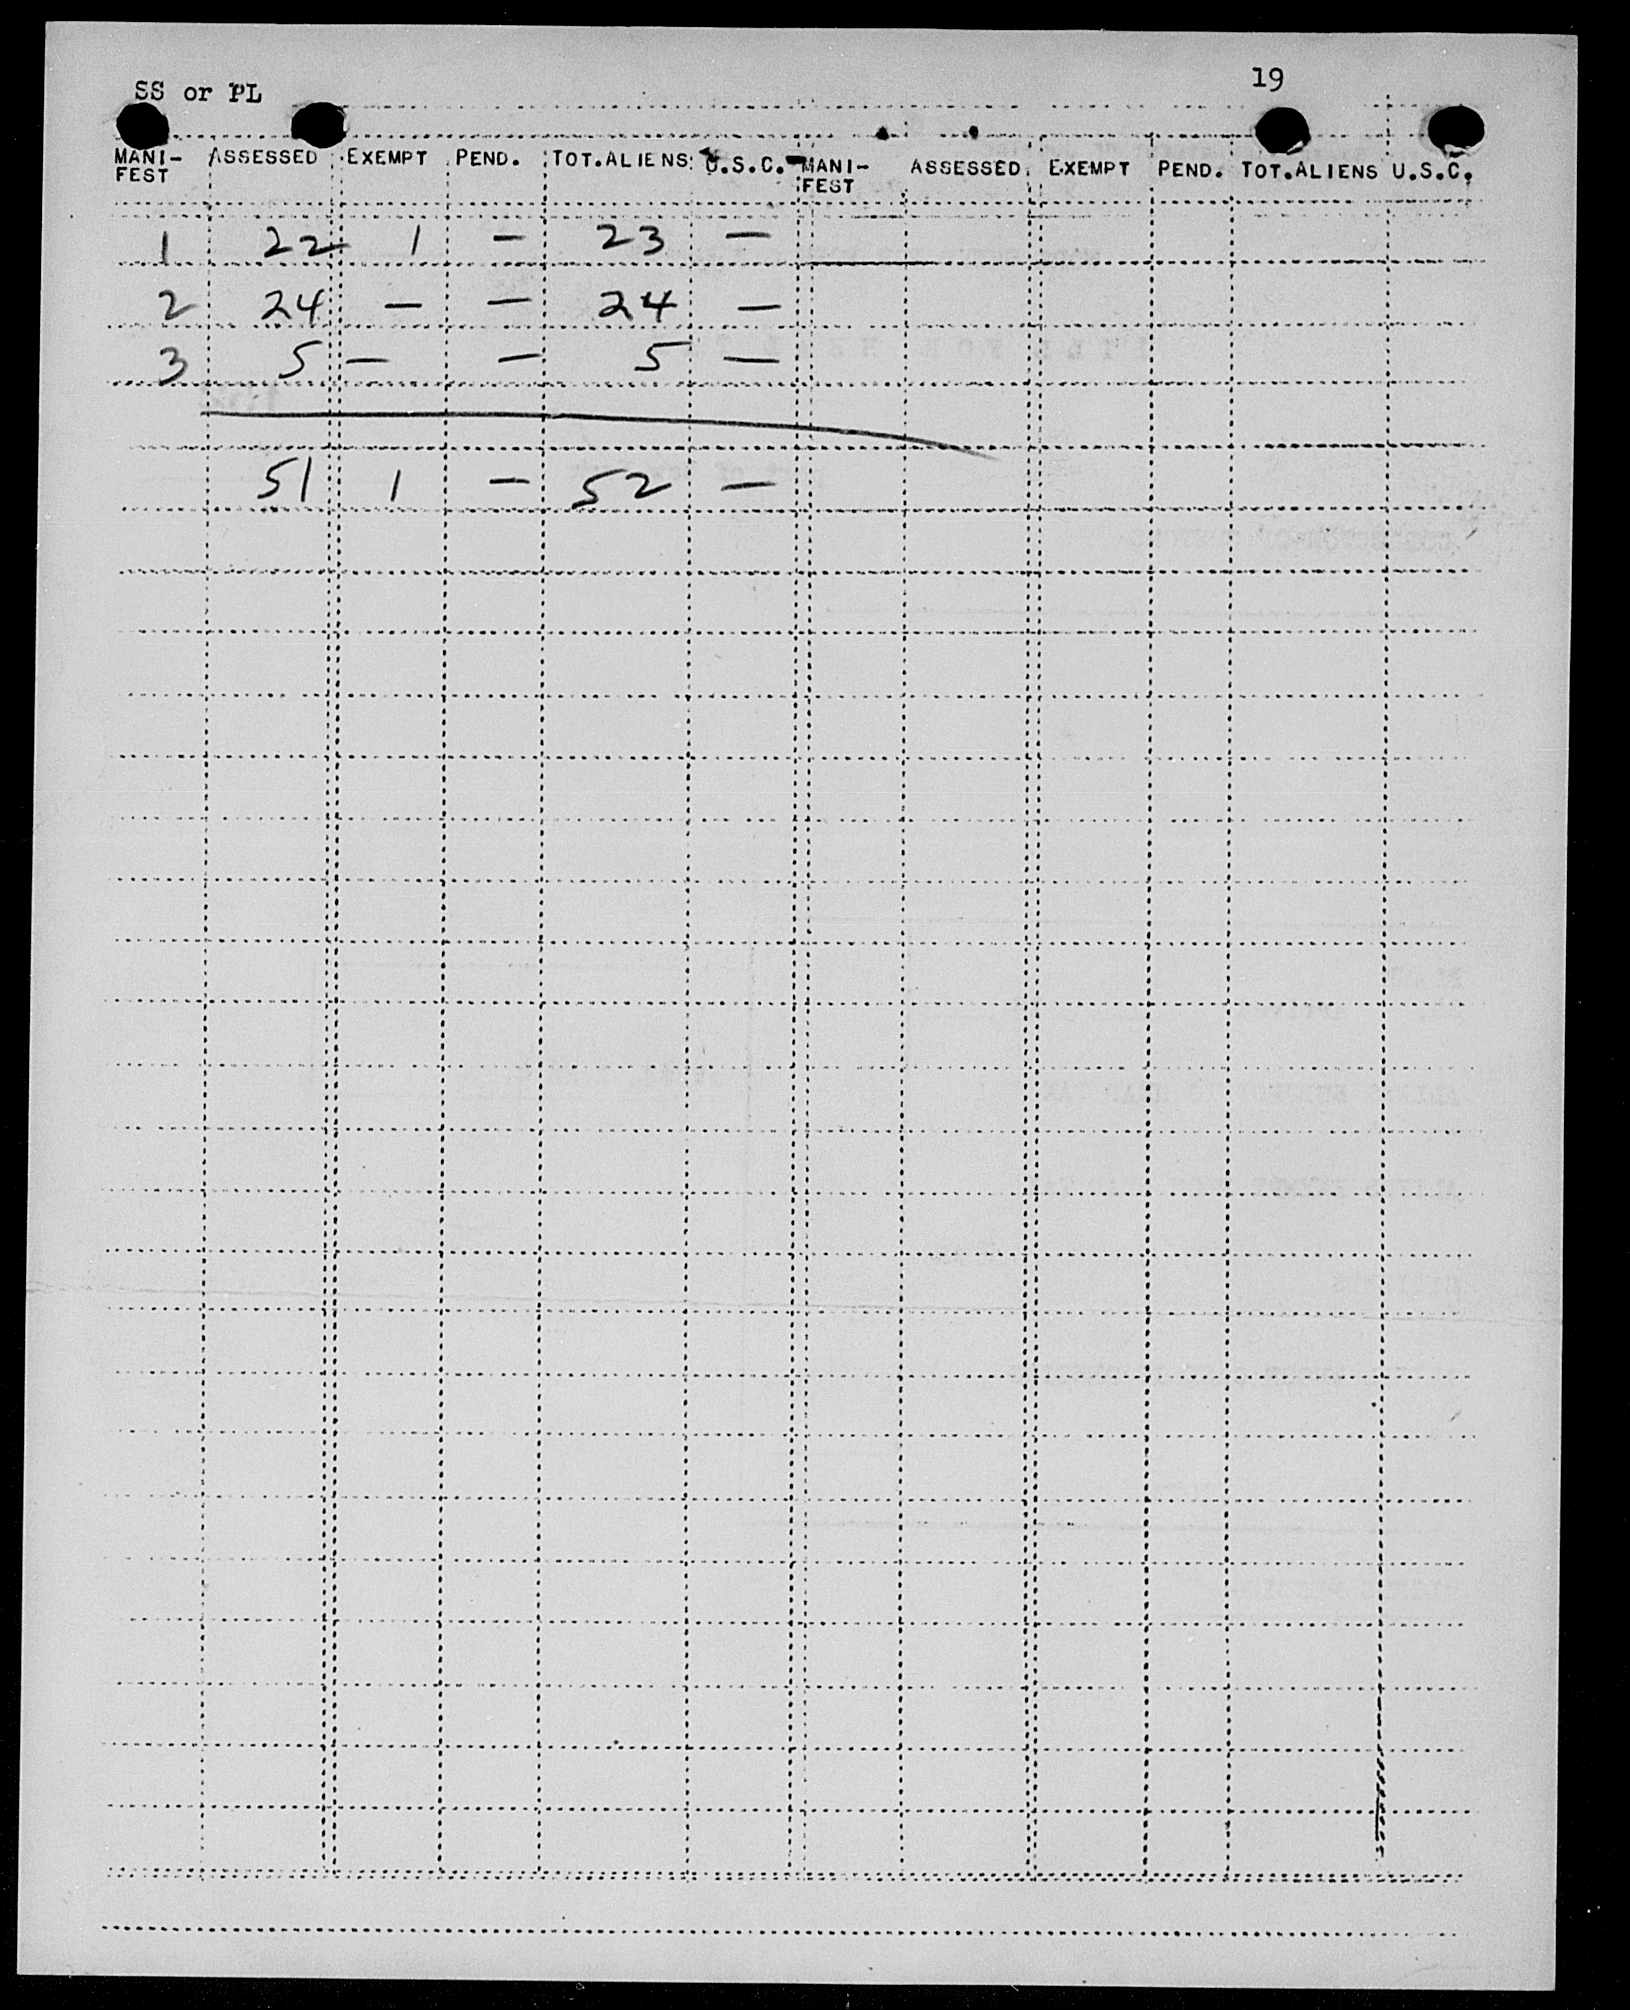 SS or PL 19
MANI- ASSESSED EXEMPT PEND. TOT.ALIENS U.S.C. MANI- ASSESSED EXEMPT PEND. TOT.ALIENS U.S.C.
FEST FEST
1 22 1 — 23 —
2 24 — — 24 —
3 5 — — 5 —
51 1 — 52 —